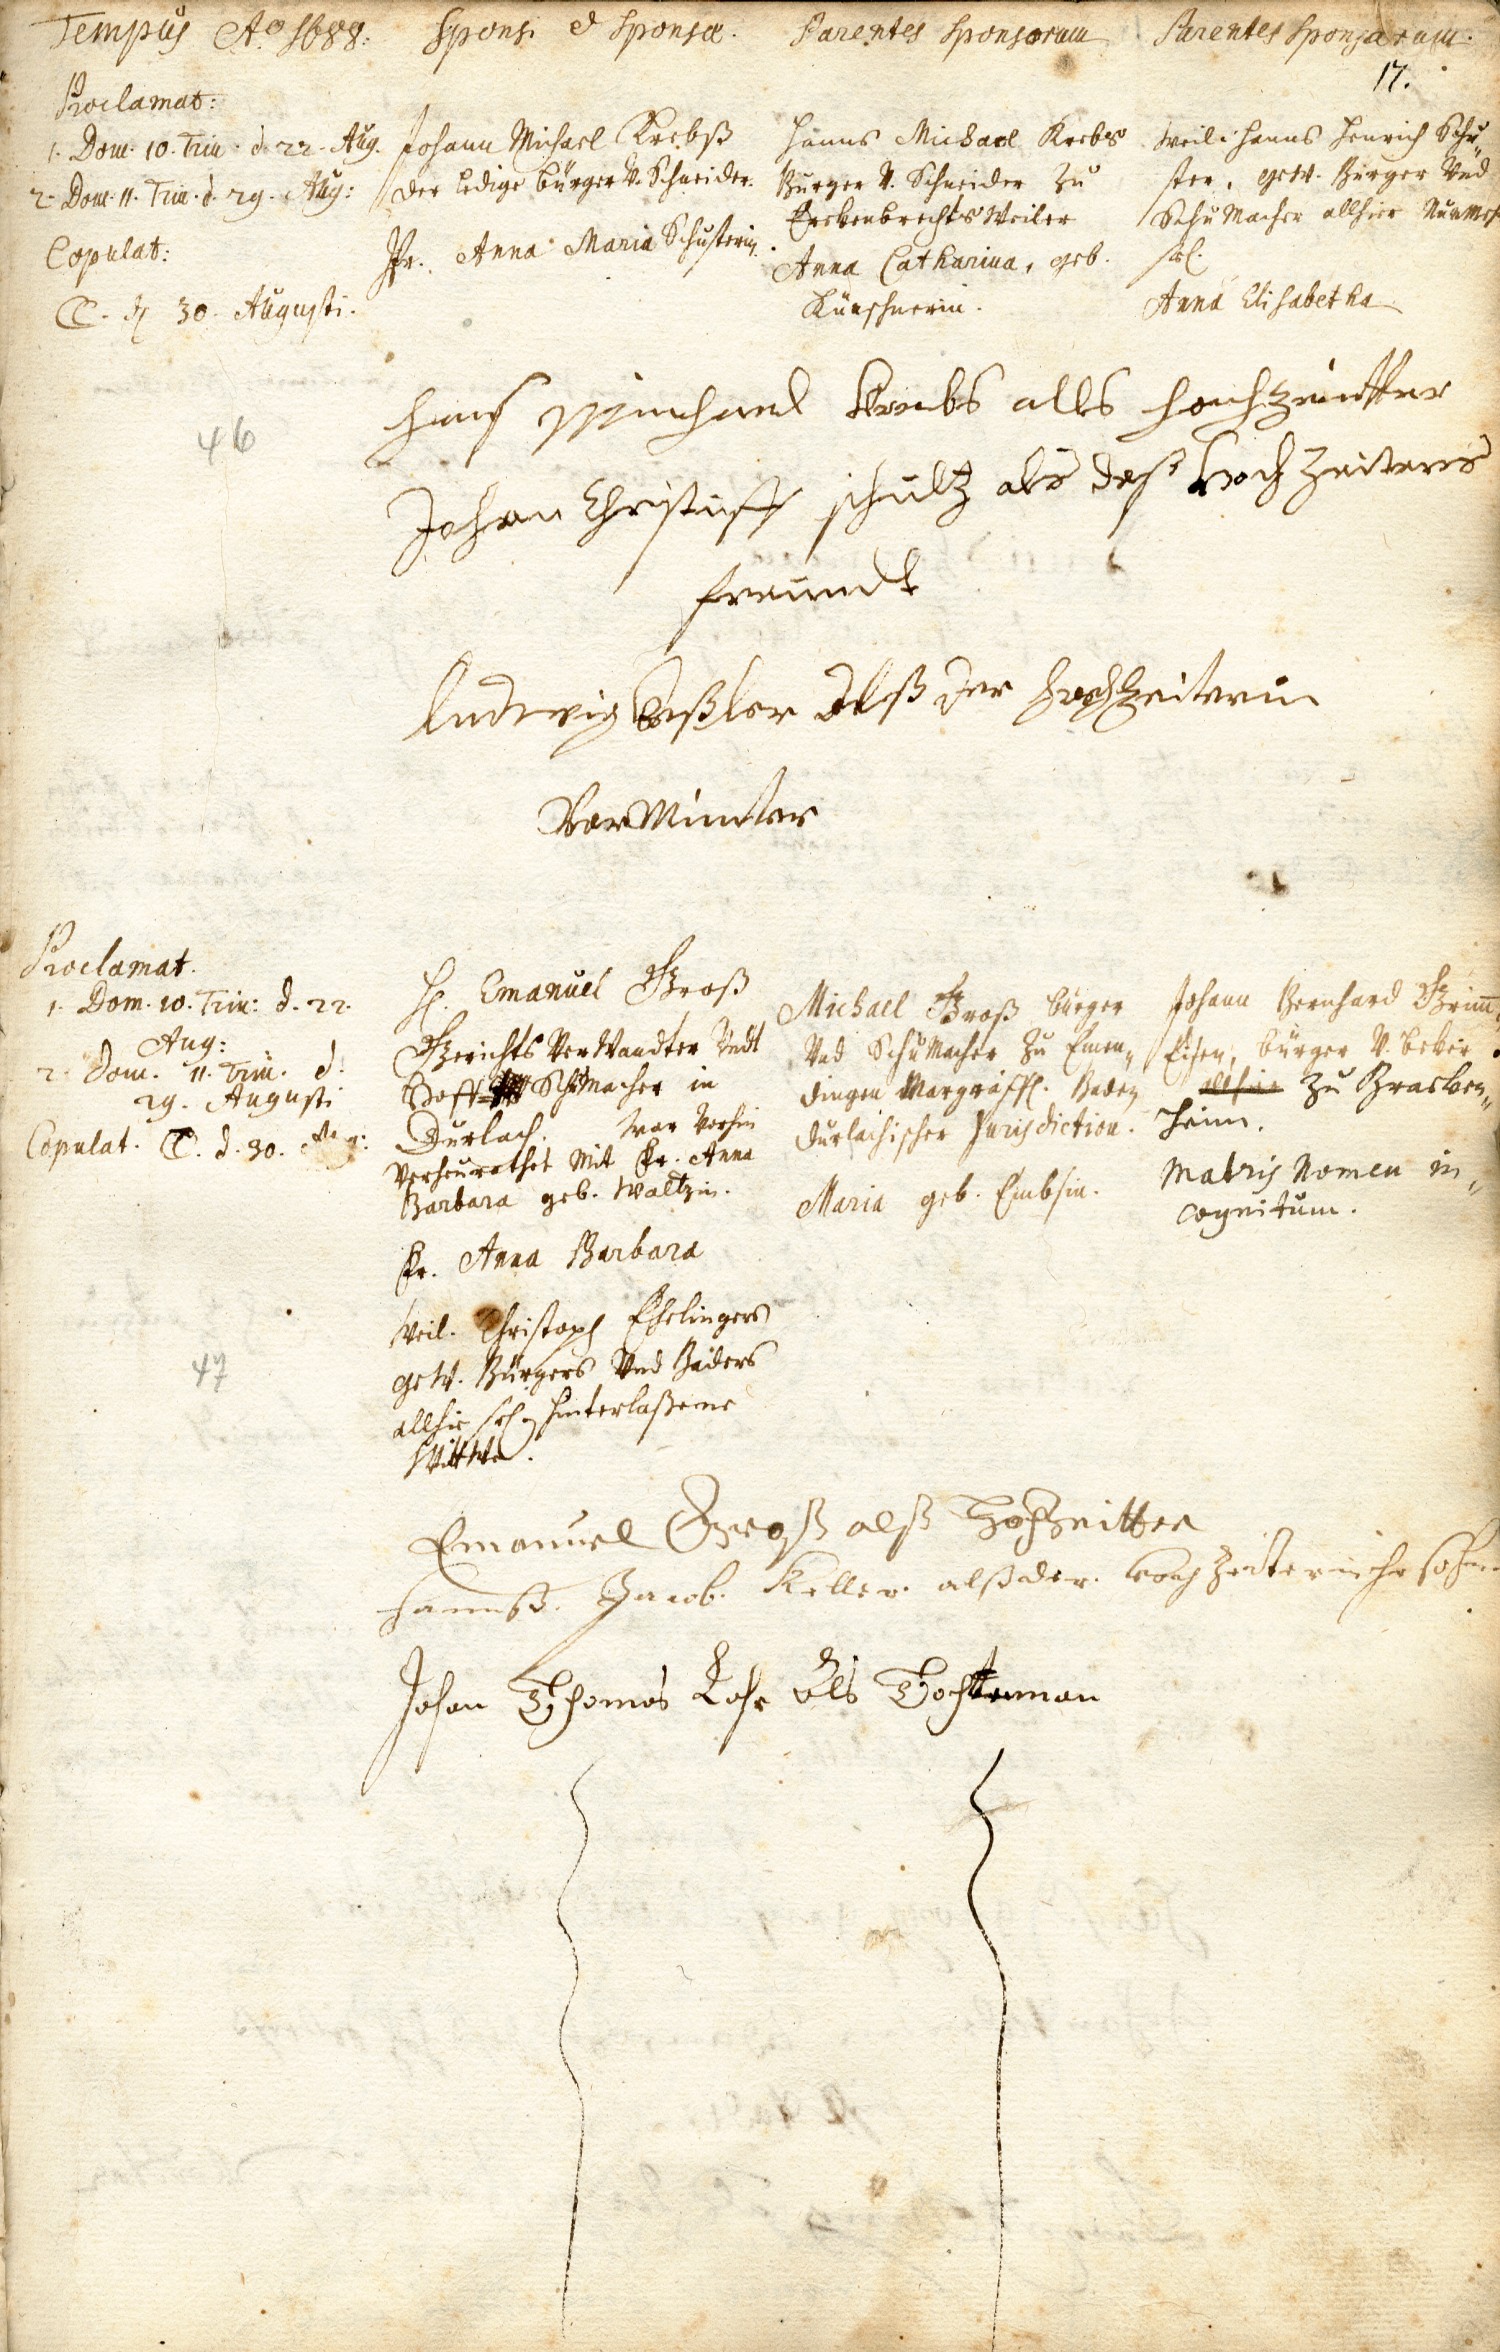 Tempus Aō 1688. Sponsi et Sponsæ. Parentes Sponsorum Parentes Sponsarum.
17.
Proclamat:
1. Dom. 10. Trin. d. 22. Aug.
2. Dom. 11. Trin. d. 29. Aug:
Copulat:
d. 30. Augusti.
Johann Michael Krebß
der ledige bürger V. Schneider.
Jfr. Anna Maria Schusterin.
Hanns Michael Krebs
Burger V. Schneider zu
Erckenbrechtsweiler
Anna Catharina, geb.
Kürschnerin.
Weil. Hanns Henrich Schu„
ster, gew. Burger Und
Schumacher allhier Nunmehr
sel.
Anna Elisabetha
46
Hans Michael Krebs alls hochzeitter
Johan Christoff schultz als deß hochzeiters
freundt
Ludwig Beßler alß der hochzeiterin
Vor Münder
Proclamat.
1. Dom. 10. Trin: d. 22.
Aug:
2. Dom. 11. Trin. d.
29. Augusti
Copulat. d. 30. Aug:
H. Emanuel Groß
Gerichts Verwandter Undt
Hoff Schumacher in
Durlach. War Vorhin
Verheurathet Mit Fr. Anna
Barbara geb. Waltzin.
Fr. Anna Barbara
Weil. Christoph Eßlingers
gew. Bürgers Und Baders
allhie sel. hinterlaßene
Wittwe.
Michael Groß bürger
Und Schumacher zu Emen„
dingen Margräffl. Baden
durlachischer Jurisdiction.
Maria geb. Embsin.
Johann Bernhard Grim̄„
Eisen, bürger V. beker
allhie zu Bracken„
heim.
Matris Nomen in„
cognitum.
47
Emanuel Groß alß Hochzeitter
hannß. Jacob. Keller. alß der. hochzeiterin ihr sohn
Johan Thomas Lohr als Tochterman